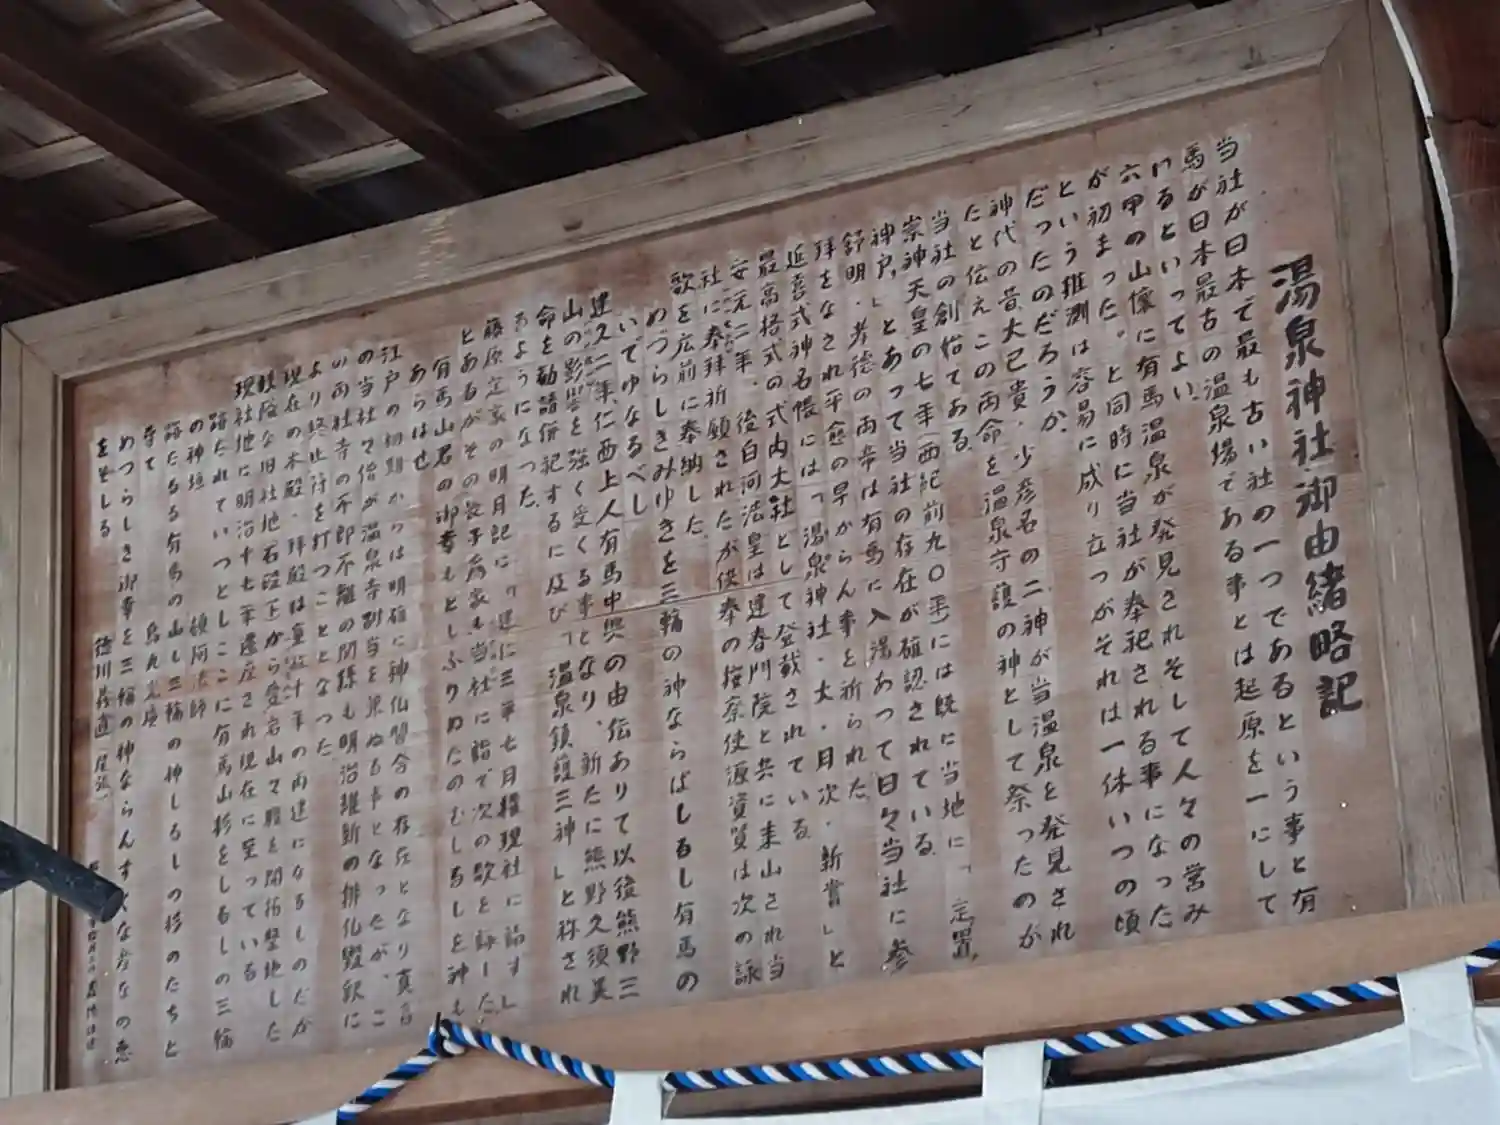 湯泉神社御由緒略記
当社が日本で最も古い社の一つであるという事と有
馬が日本最古の温泉場である事とは起原を一にして
いるといってよい
六甲の山懐に有馬温泉が発見されそして人々の営み
が初まった。と同時に当社が奉祀される事になった
という推測は容易に成り立つがそれは一体いつの頃
だったのだろうか。
神代の昔大己貴・少彦名の二神が当温泉を発見され
たと伝えこの両命を温泉守護の神として祭ったのが
当社の創始である
崇神天皇の七年(西紀前九〇年)には既に当地に「
神戸」とあって当社の存在が確認されている
舒明・孝徳の両帝は有馬に入湯あって日々当社に参
拝をなされ平愈の早からん事を祈られた
延喜式神名帳には「湯泉神社・大・月次・新嘗」と
最高格式の式内大社として登載されている
安元二年。後白河法皇は建春門院と共に来山され当
社に奉拝祈願されたが供奉の按察使源資賢は次の詠
歌を広前に奉納した
めづらしきみゆきを三輪の神ならばしるし有馬の
いでゆなるべし
建久二年、仁西上人有馬中興の由伝ありて以後熊野三
山の影響を強く受くる事となり、新たに熊野久須美
命を勧請併祀するに及び「温泉鎮護三神」と称され
るようになった
藤原定家の明月記に
とあるがその
有馬山君の御幸も としふりぬたのむしるしを神も
あらはせ
江戸の初期かつては明確に神仏習合の存在となり真言
の当社々僧が温泉寺別当を兼ぬる事となったが、こ
の両社寺の不即不離の関係も明治維新の排仏毀釈に
より終止符を打つこととなった
現在の本殿・拝殿は 十年の再建になるものだが
旧社地(石段下)から愛宕山々腹を開拓整地した
現社地に明治十七年遷座され現在に至っている
跡たれていつとしここに有馬山杉をしるしの三輪
の神垣
跡たるる有馬の山し三輪の神しるしの杉のたちと
烏丸光廣
めつらしき御事を三輪の神ならんすくなひこなの恵
をそしる
徳川義直(尾張)